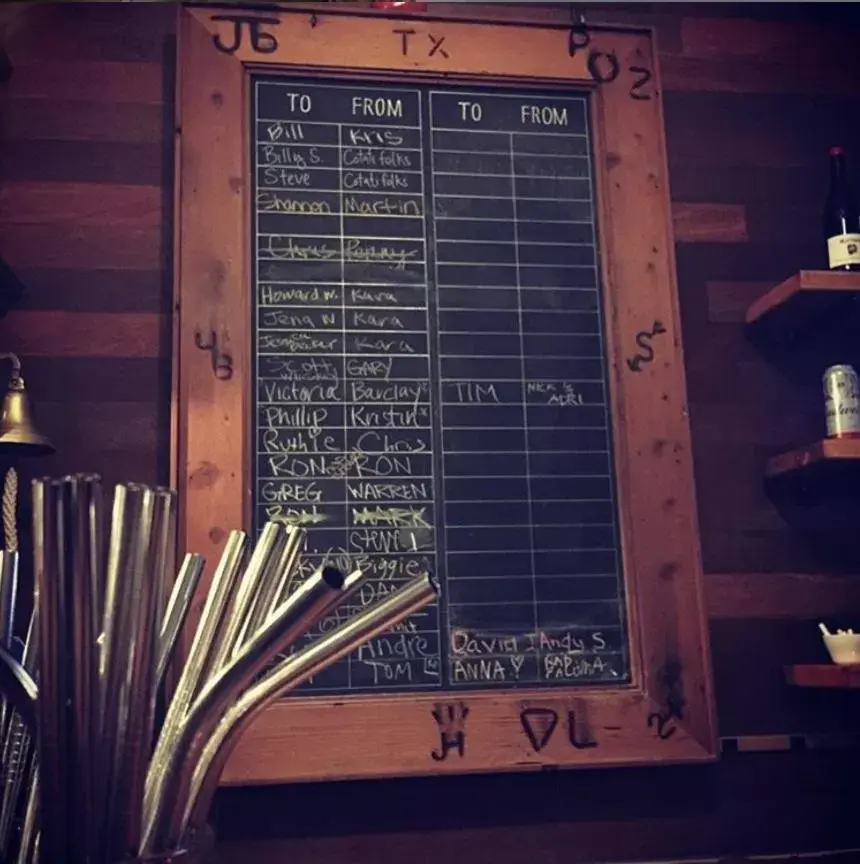 JB TX
TO FROM TO FROM
Bill Kris
Billy S. Cotati folks
Steve Cotati folks
Shannon Martin
Chris Penny
Howard M. Kara
Jena N Kara
Kara
Scott GARY
Victoria Barclay TIM NICK & ADRI
Phillip Kristin
Ruthie Chris
RON RON
GREG WARREN
RON MARK
Steve
Biggie
DAN
Andre David Andy S.
TOM ANNA
JH